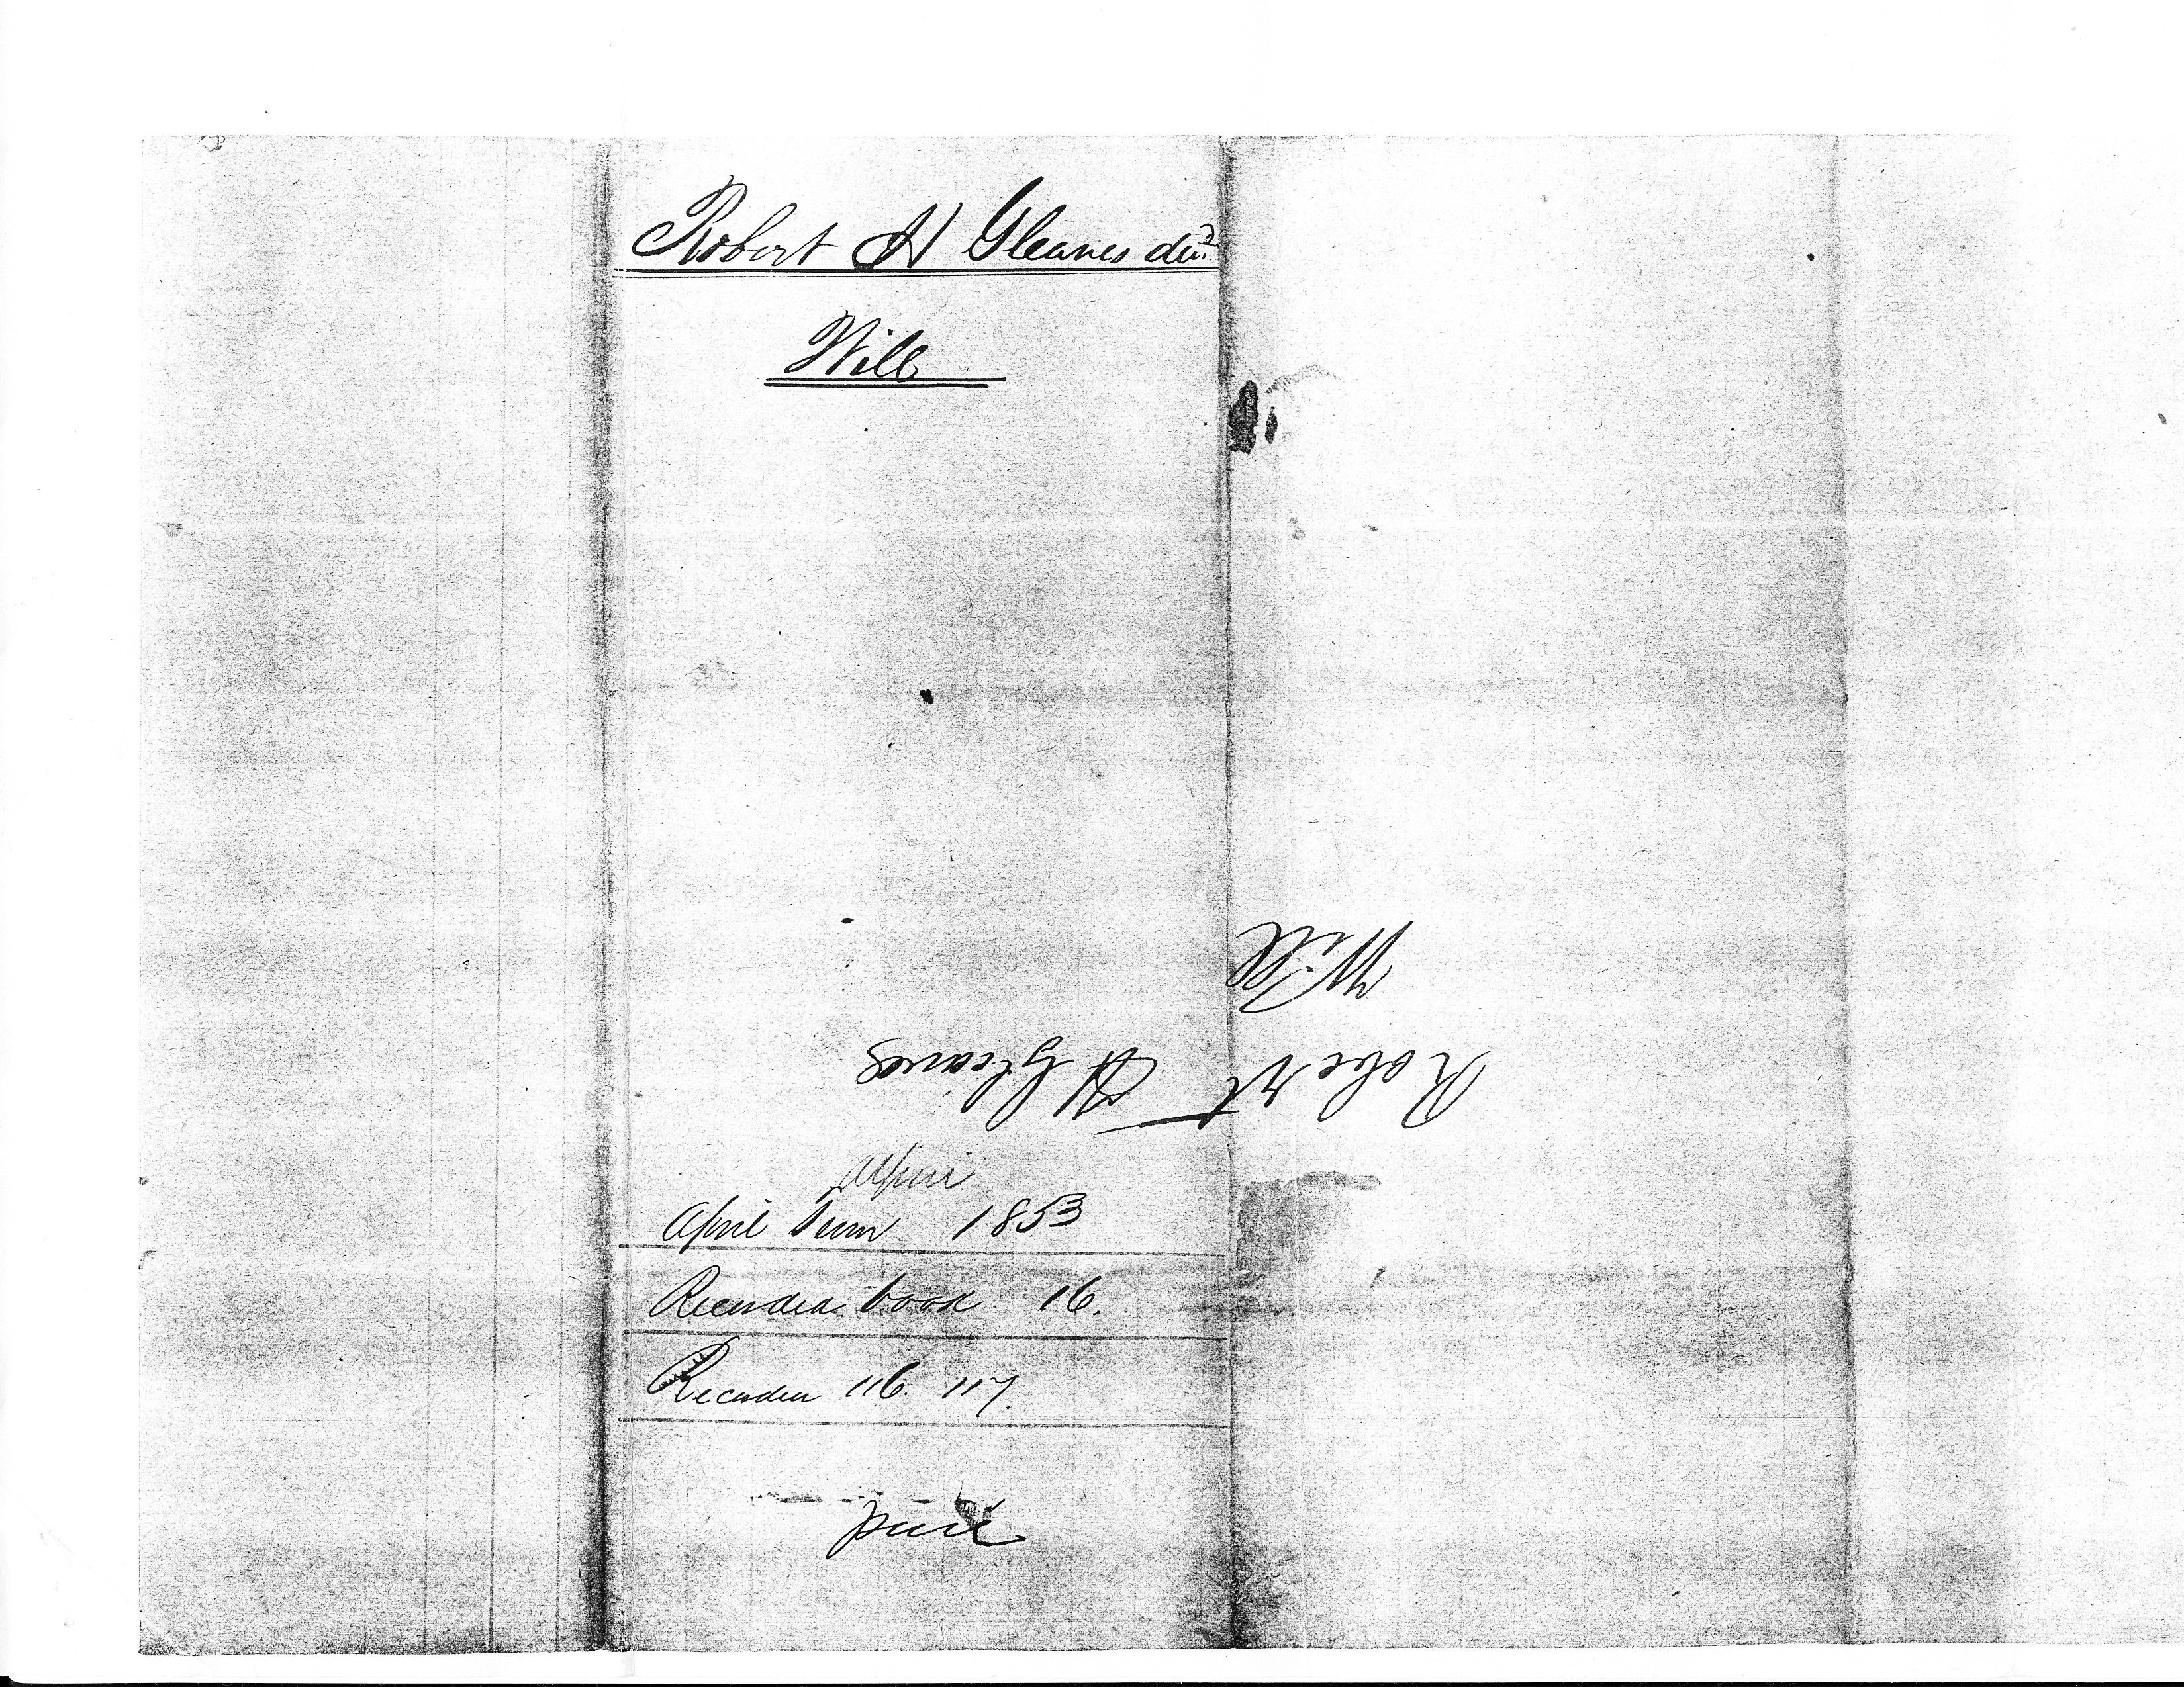 Robert H Gleaves decd
Will
Will
Robert H Gleaves
April
April Term 1853
Recorded book 16.
Recorded 116. 117.